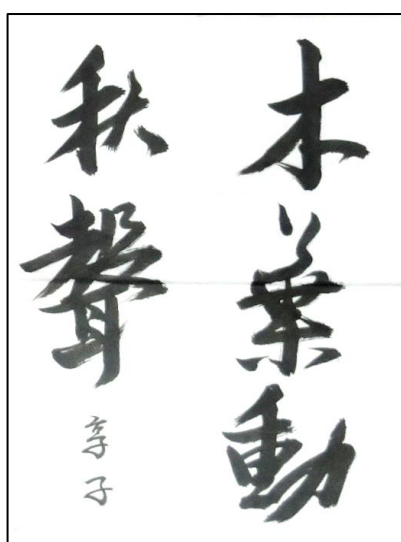 木葉動
秋聲
享子